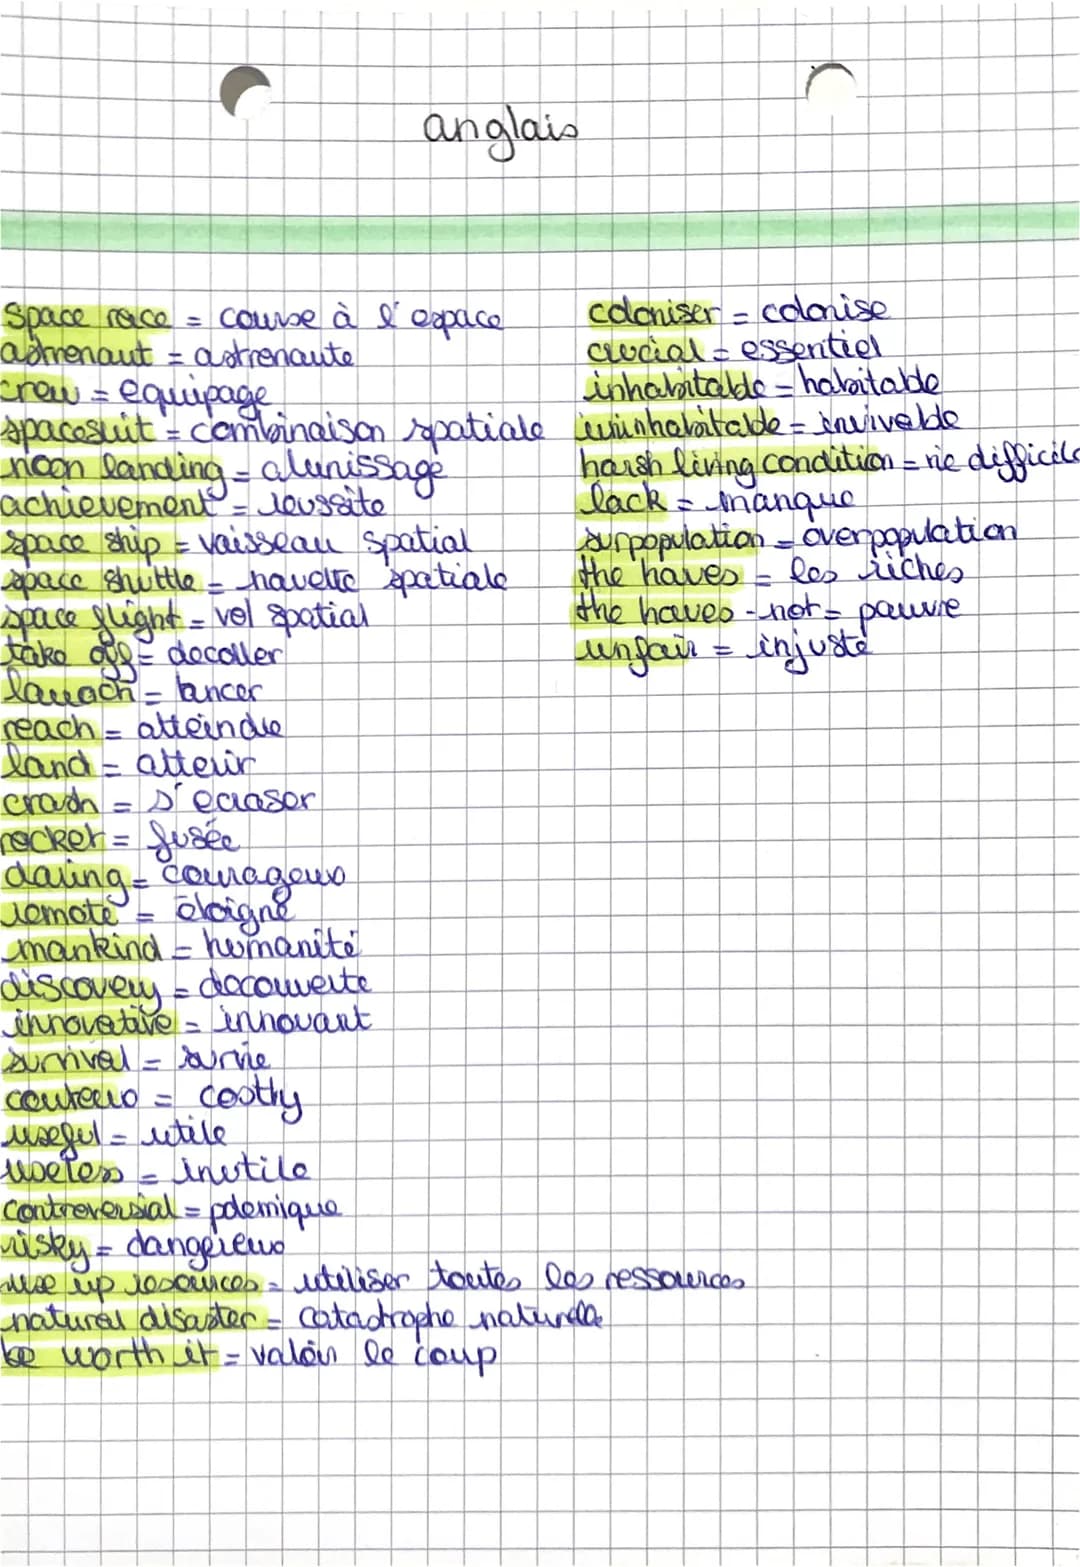 anglais
Space race = course à l'espace
astronaut = astronaute
crew = equipage
spacesuit = combinaison spatiale
moon landing = alunissage
achievement = reussite
space ship = vaisseau spatial
space shuttle = navette spatiale
space flight = vol spatial
take off = decoller
launch = lancer
reach = atteindre
land = atterir
crash = s'ecraser
rocket = fusée
daring = courageux
remote = éloigné
mankind = humanité
discovery = decouverte
innovative = innovant
survival = survie
couteux = costly
useful = utile
useless = inutile
controversial = polemique
risky = dangereux
use up resources = utiliser toutes les ressources
natural disaster = catastrophe naturelle
be worth it = valoir le coup
coloniser = colonise
crucial = essentiel
inhabitable = habitable
uninhabitable = invivable
harsh living condition = vie difficile
lack = manque
surpopulation = overpopulation
the haves = les riches
the haves-not = pauvre
unfair = injuste